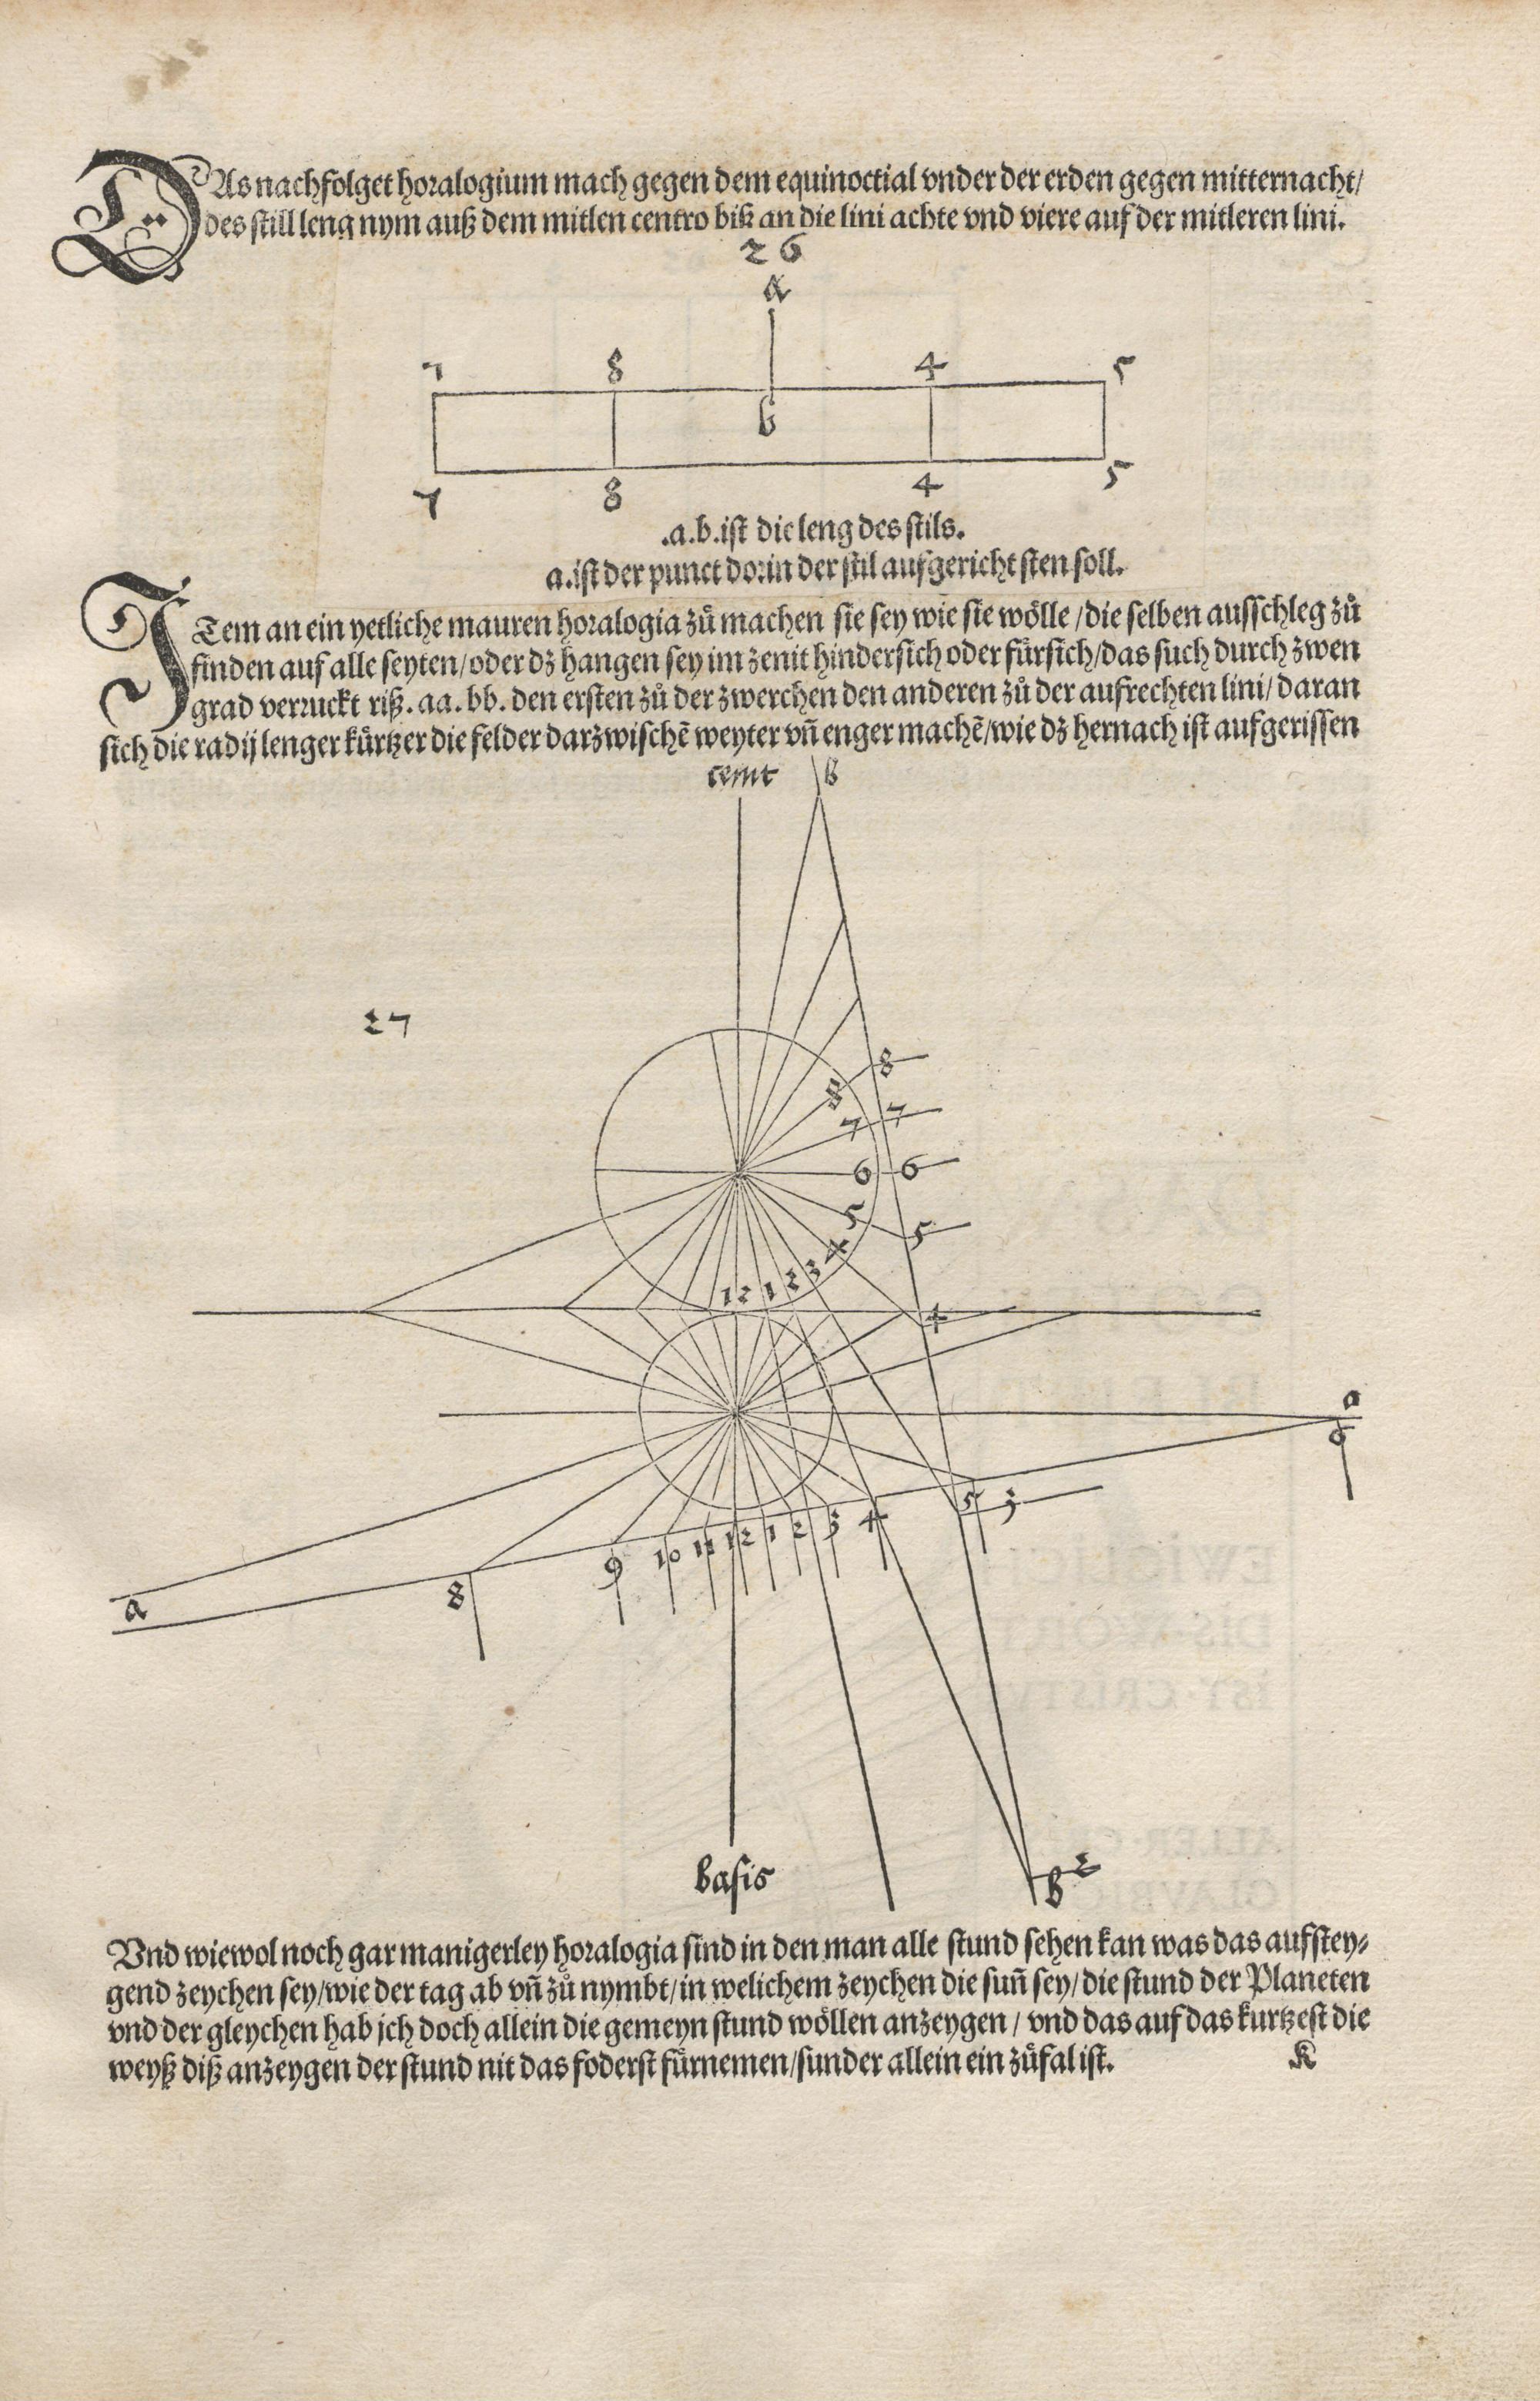 DAs nachfolget horalogium mach gegen dem equinoctial vnder der erden gegen mitternacht/
des still leng nym auß dem mitlen centro biß an die lini achte vnd viere auf der mitleren lini.
26
a
7 8 4 5
b
7 8 4 5
.a.b.ist die leng des stils.
a.ist der punct dorin der stil aufgericht sten soll.
ITem an ein yetliche mauren horalogia zů machen sie sey wie sie wölle/die selben ausschleg zů
finden auf alle seyten/oder dz hangen sey im zenit hindersich oder fürsich/das such durch zwen
grad verruckt riß.aa.bb.den ersten zů der zwerchen den anderen zů der aufrechten lini/daran
sich die radij lenger kürtzer die felder darzwischē weyter vñ enger machē/wie dz hernach ist aufgerissen
cenit b
27
8
8
7 7
6 6
5 5
4
12 1 2 3
4
a
6
5 3
8 9 10 11 12 1 2 3 4
a
basis
b 2
Vnd wiewol noch gar manigerley horalogia sind in den man alle stund sehen kan was das aufstey⸗
gend zeychen sey/wie der tag ab vñ zů nymbt/in welichem zeychen die suñ sey/die stund der Planeten
vnd der gleychen hab jch doch allein die gemeyn stund wöllen anzeygen/vnd das auf das kurtzest die
weyß diß anzeygen der stund nit das foderst fürnemen/sunder allein ein zůfal ist.
K